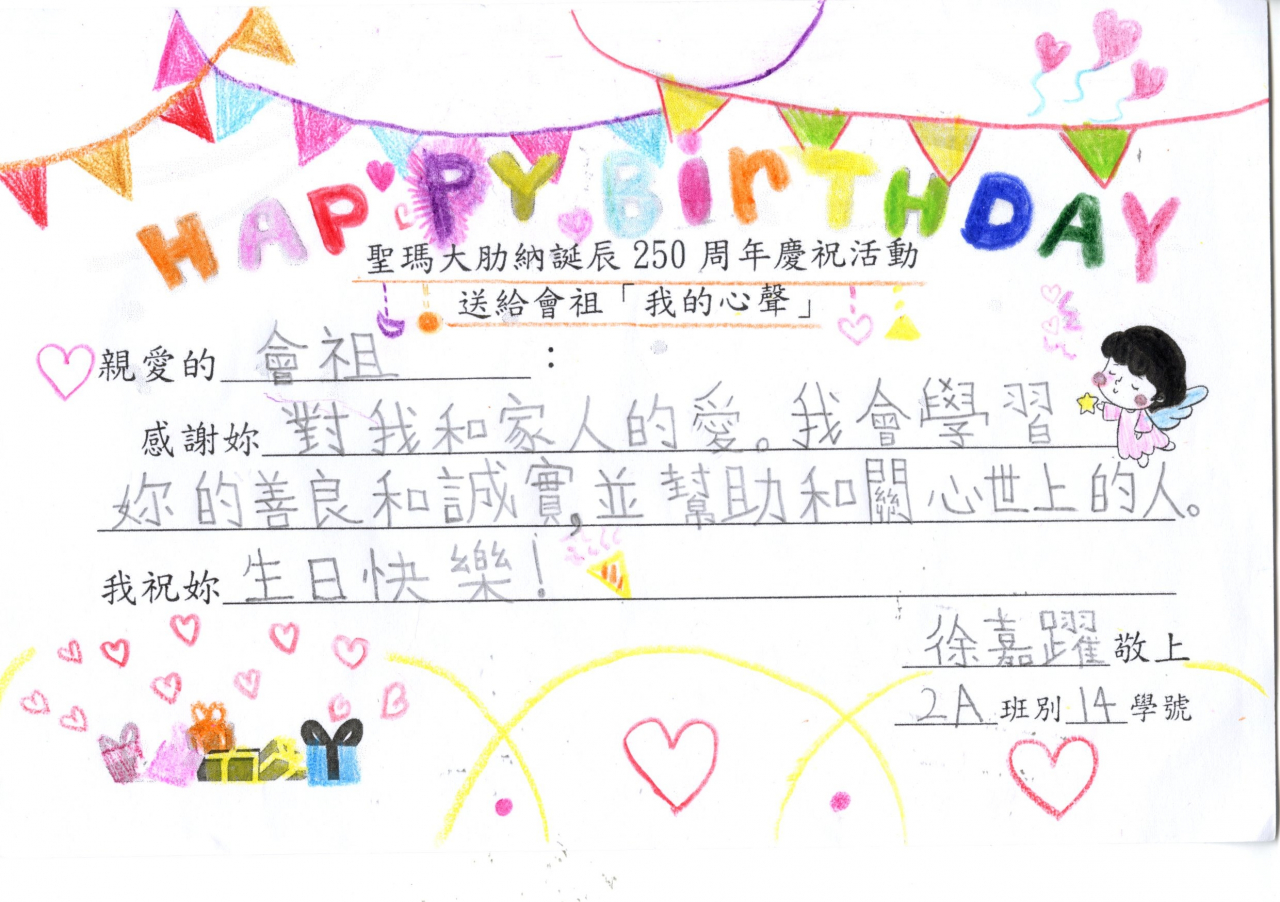 HAPPY BirTHDAY
聖瑪大肋納誕辰 250 周年慶祝活動
送給會祖「我的心聲」
親愛的 會祖 :
感謝妳 對我和家人的愛。我會學習
妳的善良和誠實,並幫助和關心世上的人。
我祝妳 生日快樂!
徐嘉躍 敬上
2A 班別 14 學號